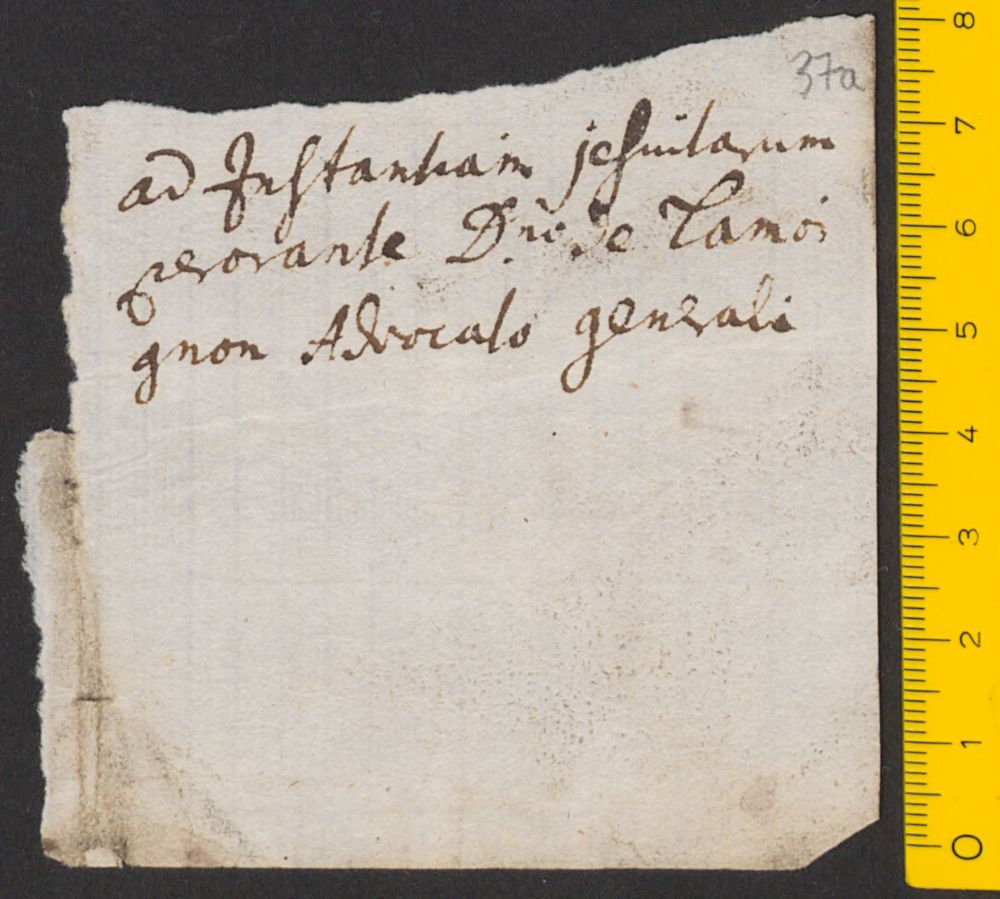 37a
ad Instantiam jesuitarum
perorante D.no de Lamoi
gnon Advocato generali
8
7
6
5
4
3
2
1
0